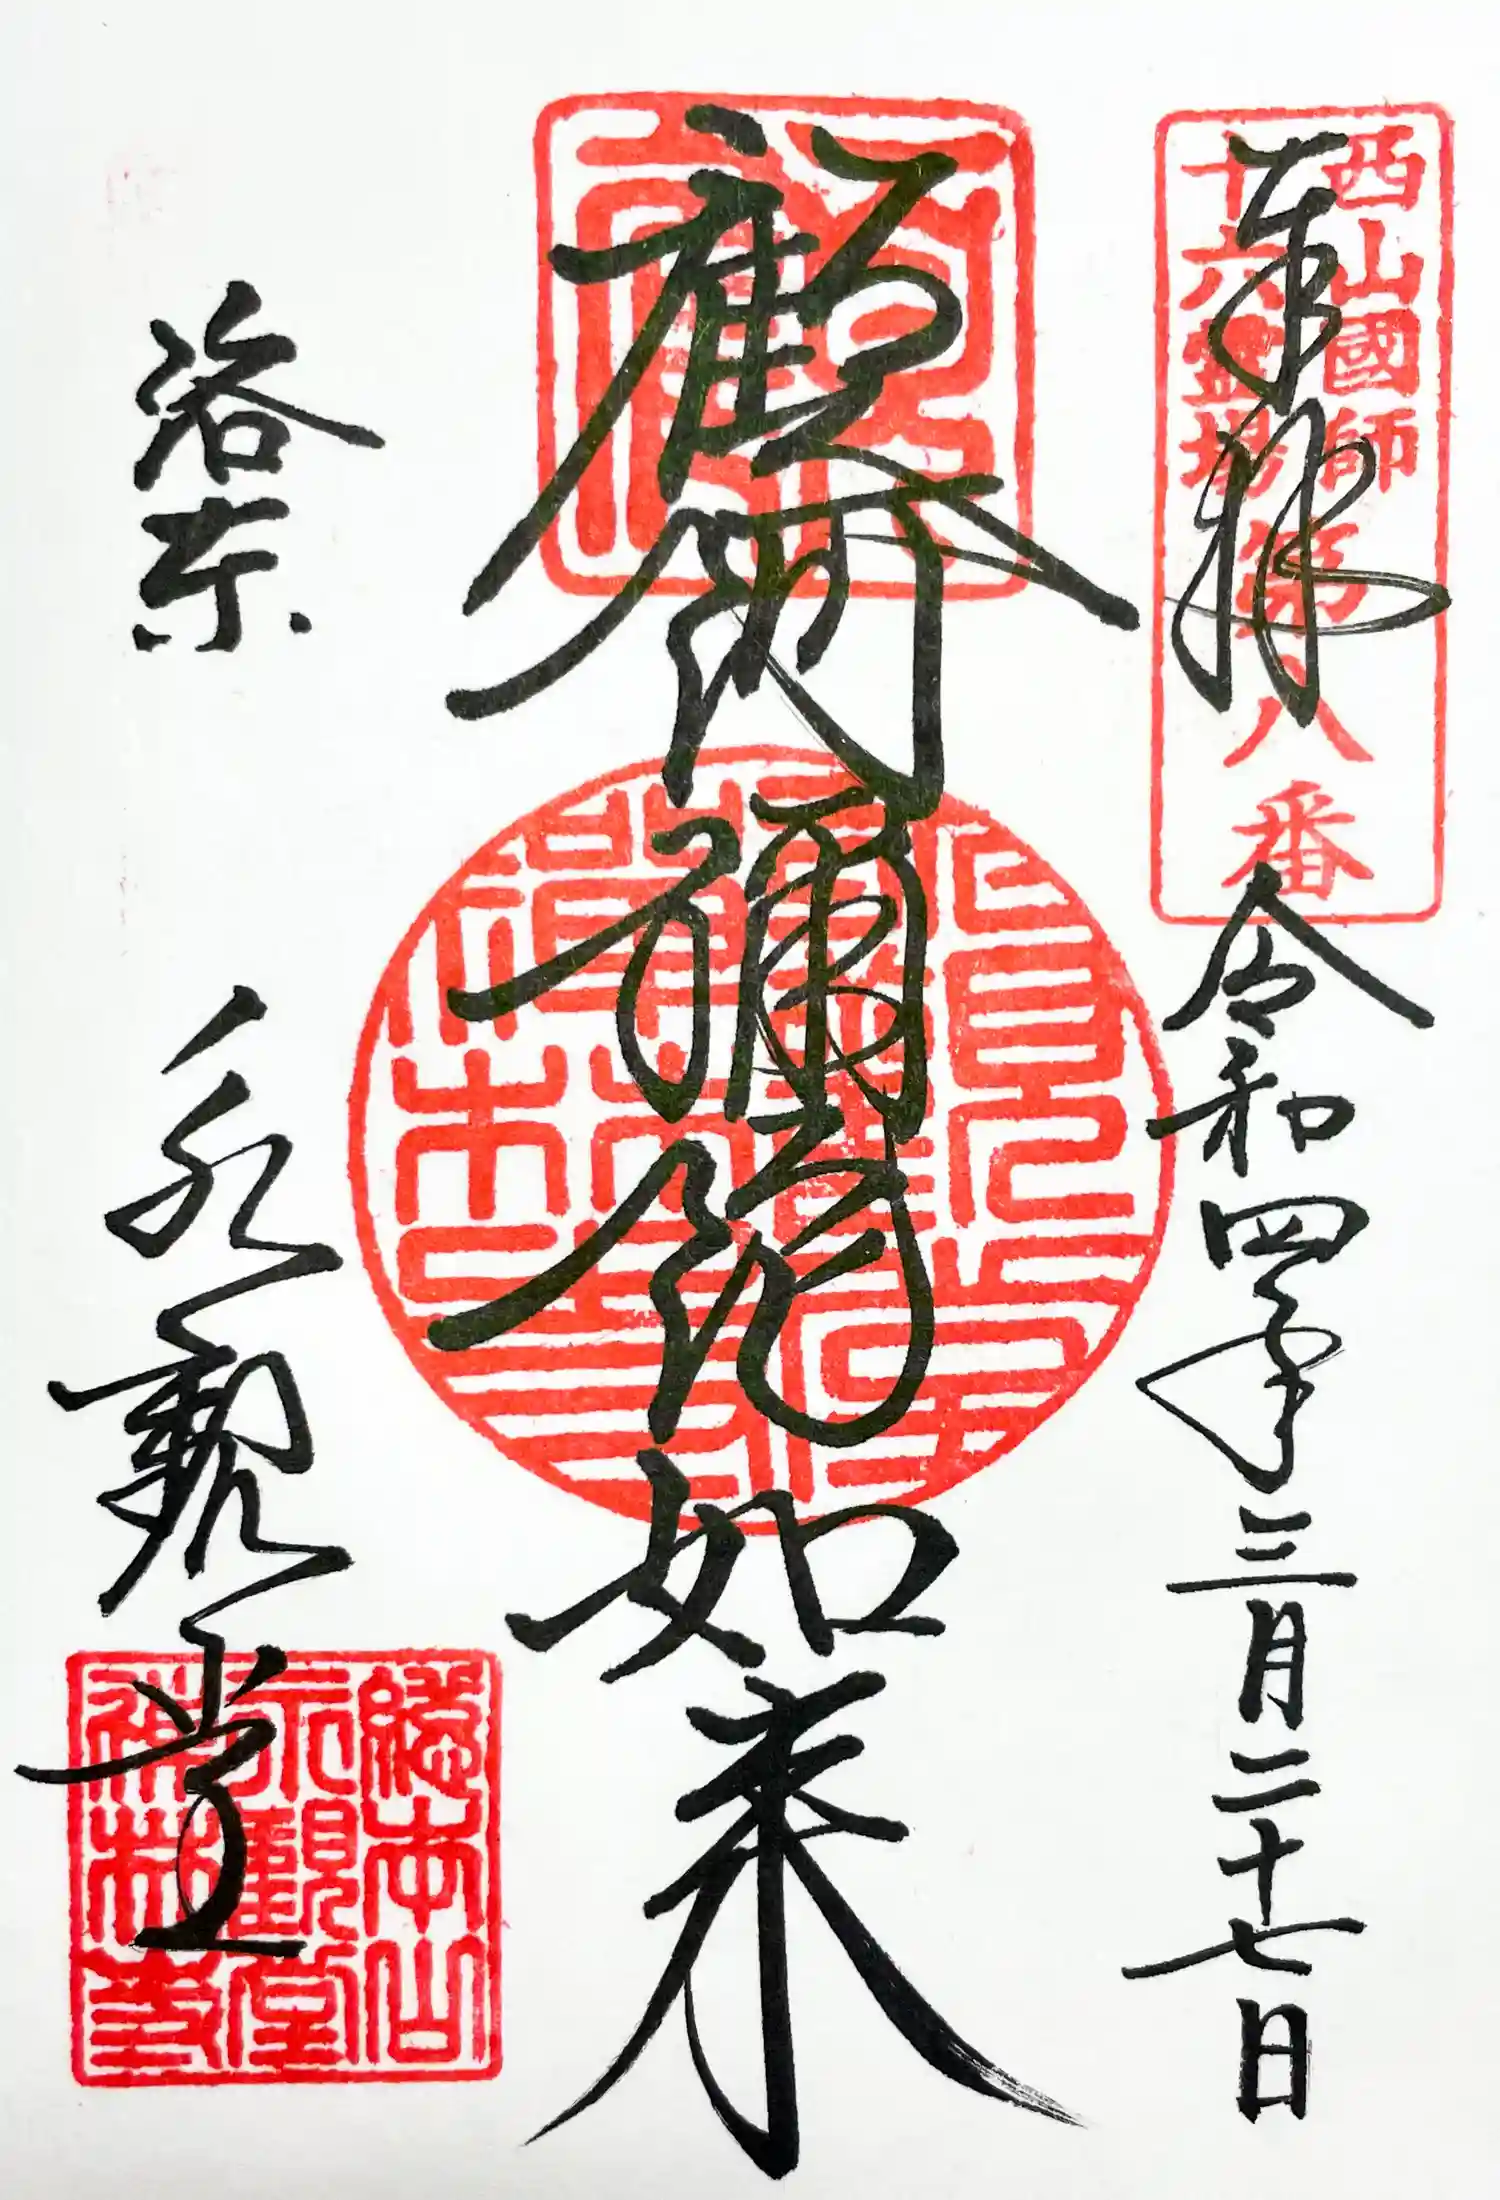 西山國師
十六霊場
第八番
奉拝
令和四年三月二十七日
顧阿彌陀如来
洛東
永觀堂
總本山
永觀堂
禅林寺